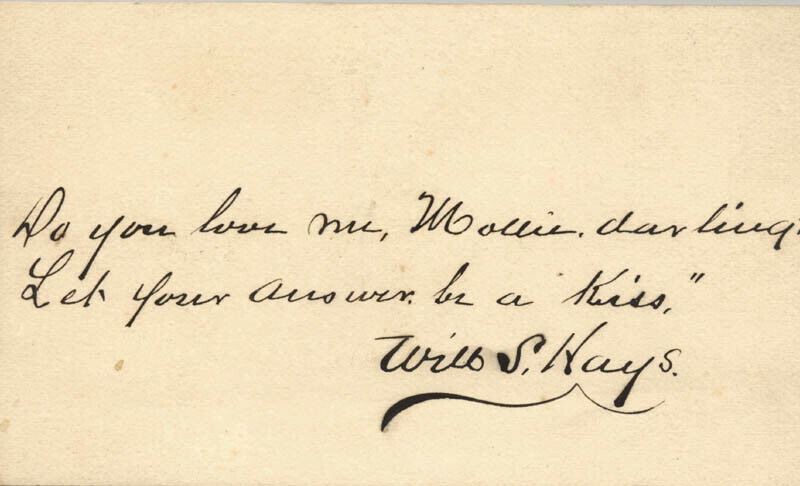 Do you love me, Mollie. darling,
Let your answer. be a Kiss,"
Will S. Hays.